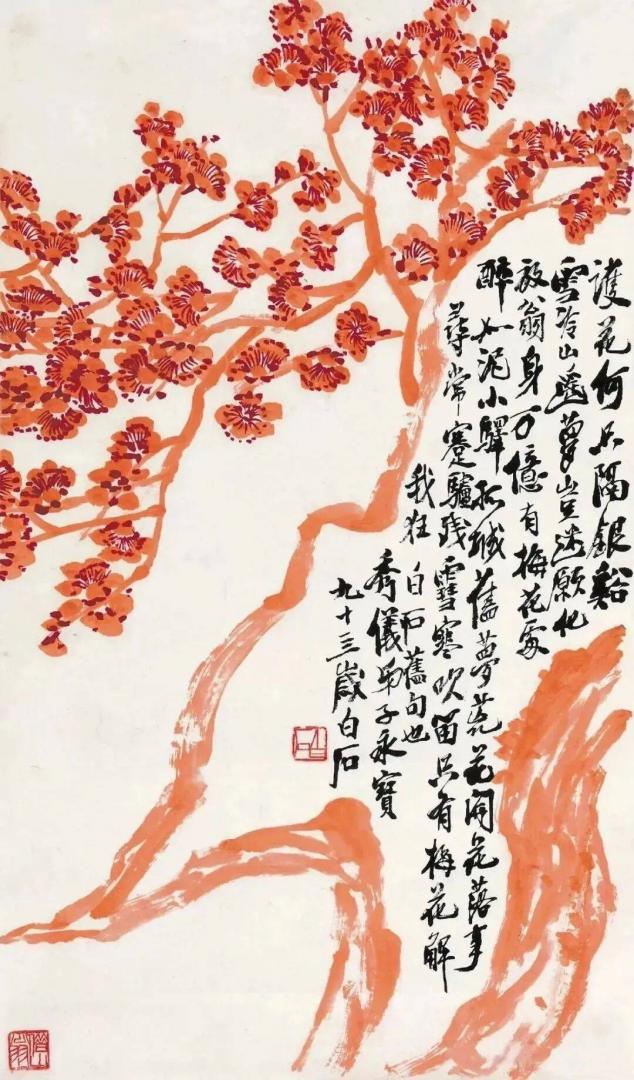 護花何只隔銀谿
雪冷山遙夢豈迷願化
放翁身万億有梅花處
醉如泥小驛孤城舊夢荒花開花落事
尋常蹇驢殘雪寒吹笛只有梅花解
我狂 白石舊句也
秀儀弟子永寶
九十三歲白石
白石
借山翁